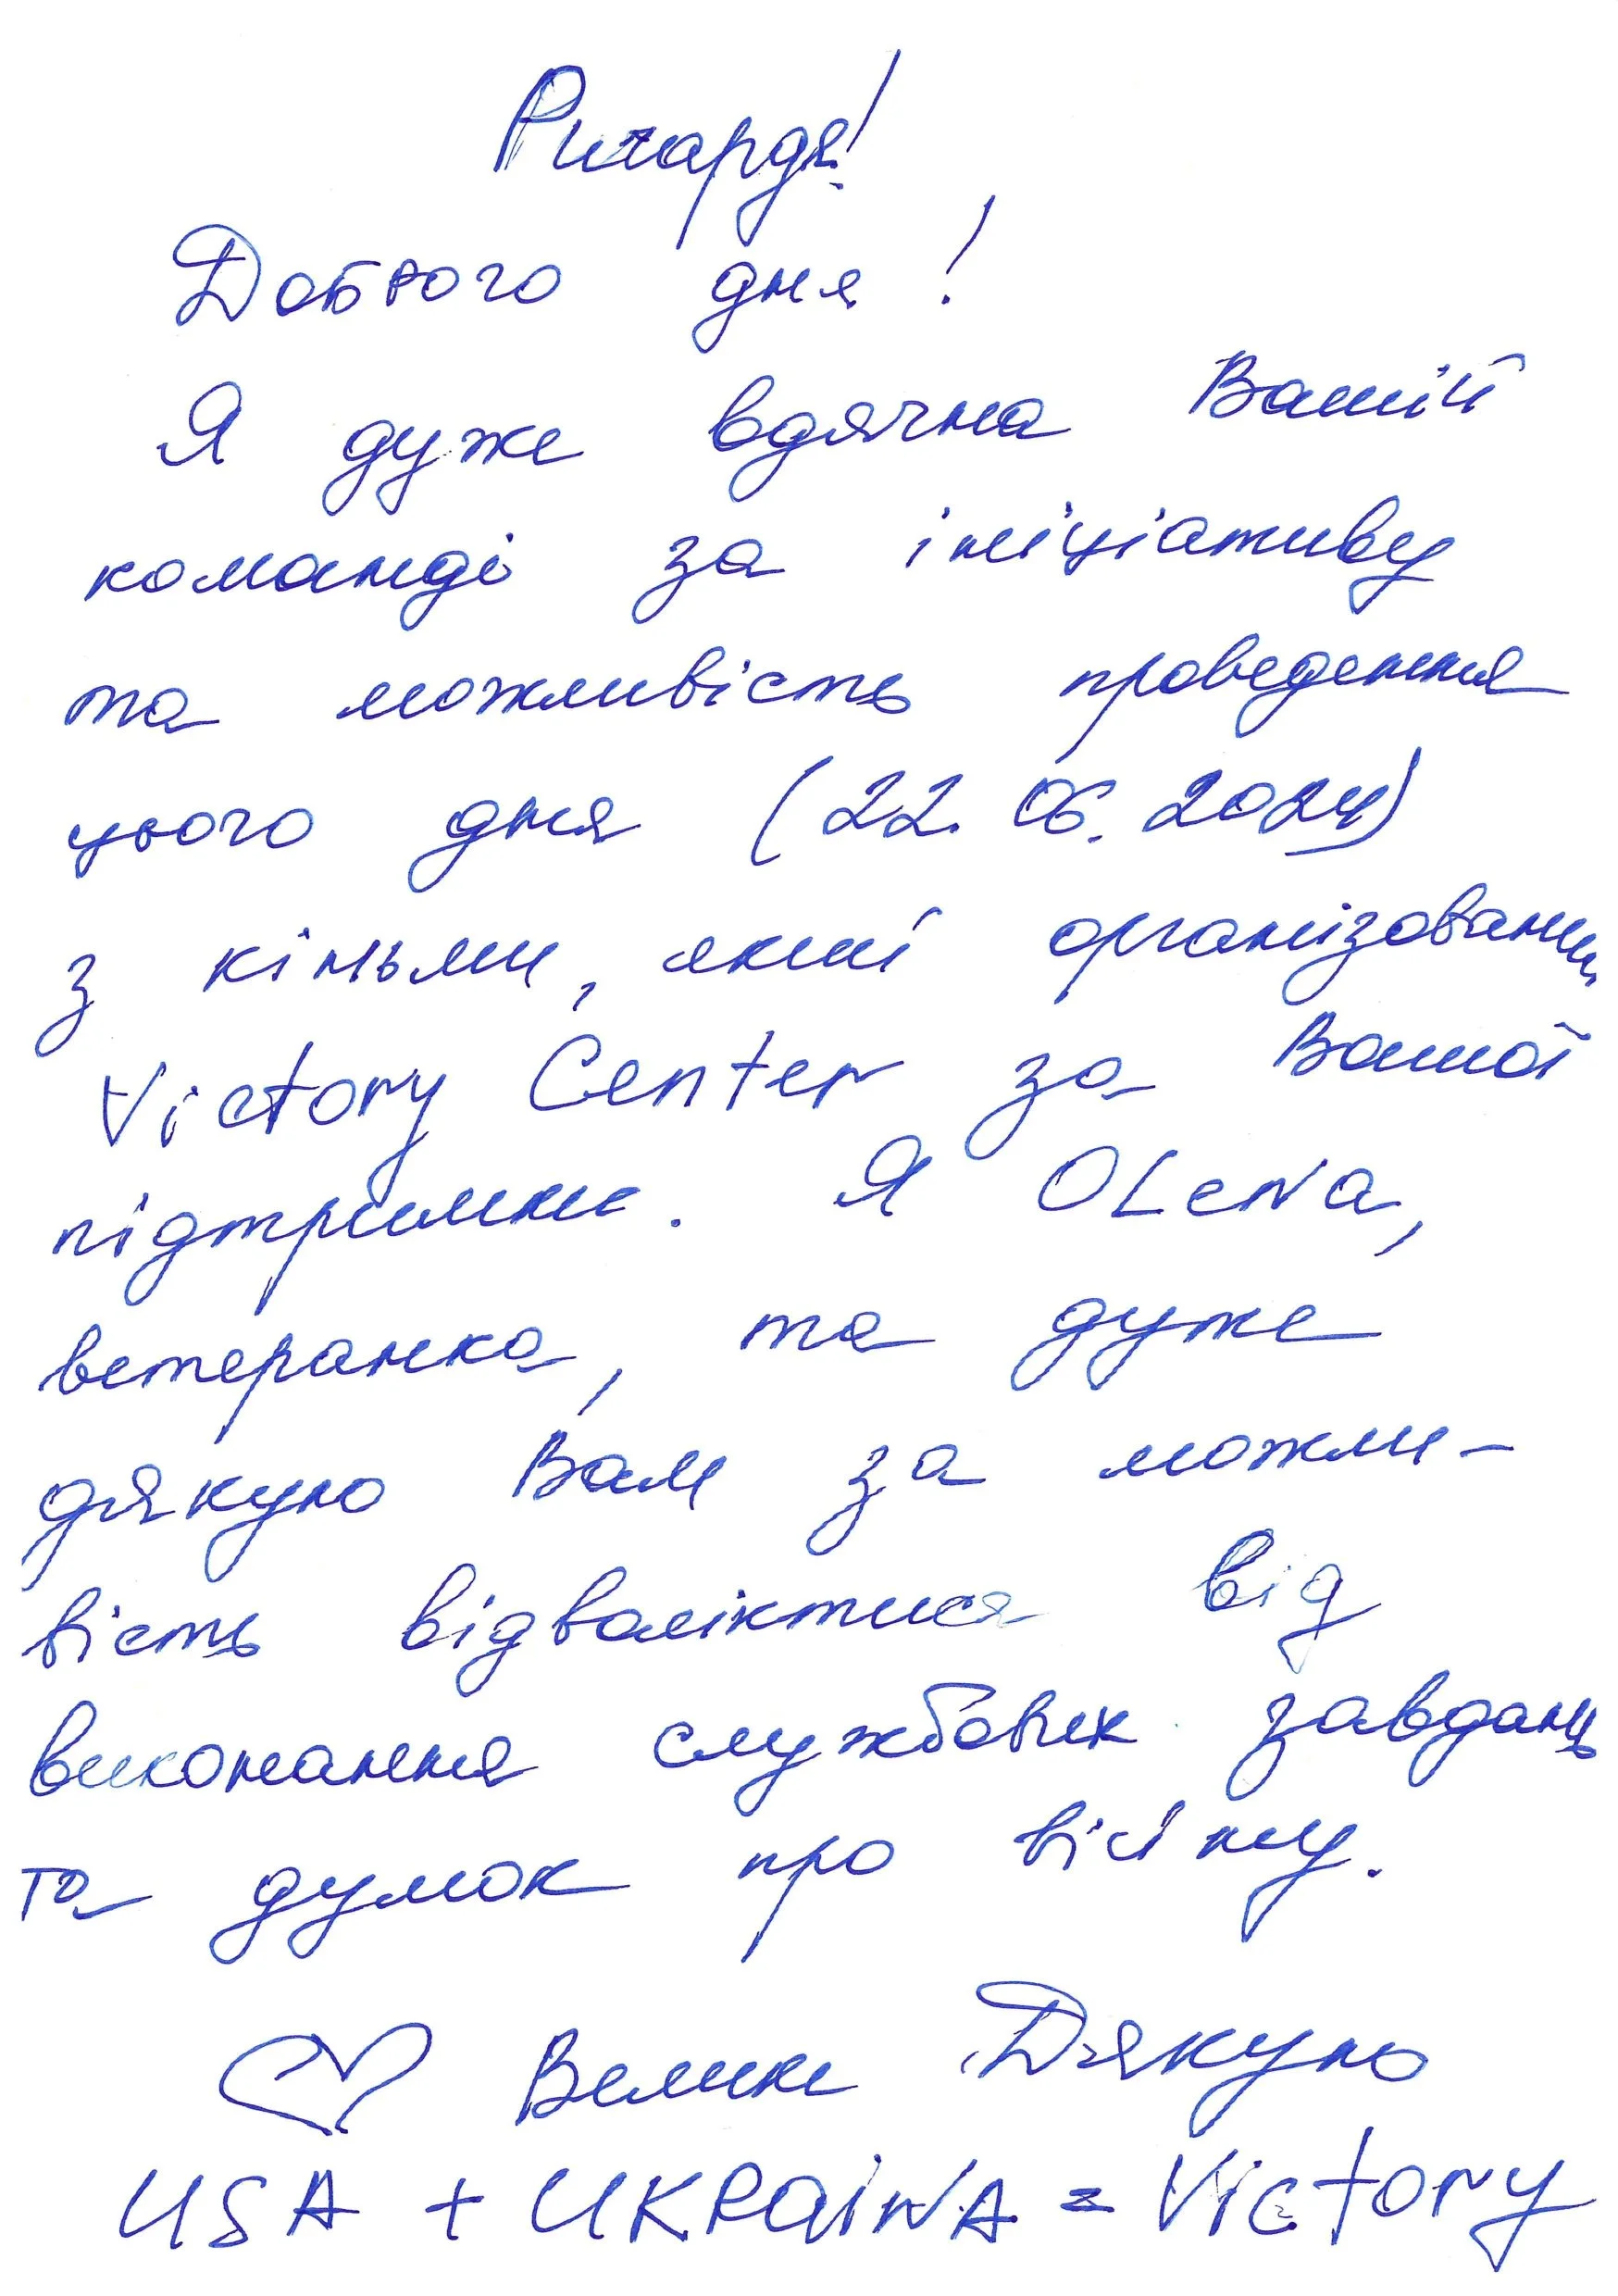 Ричардя!
Доброго дня!
Я дуже вдячна Вашій
команді за ініціативу
та можливість проведення
цього дня (22.06.2024)
з кіньми, який організований
Victory Center за Вашої
підтримки. Я OLeNa,
ветеранка, та дуже
дякую Вам за можли-
вість відволіктися від
виконання службових завдань
та думок про війну.
♡ Велике Дякую
USA + UKRAiNA = Victory